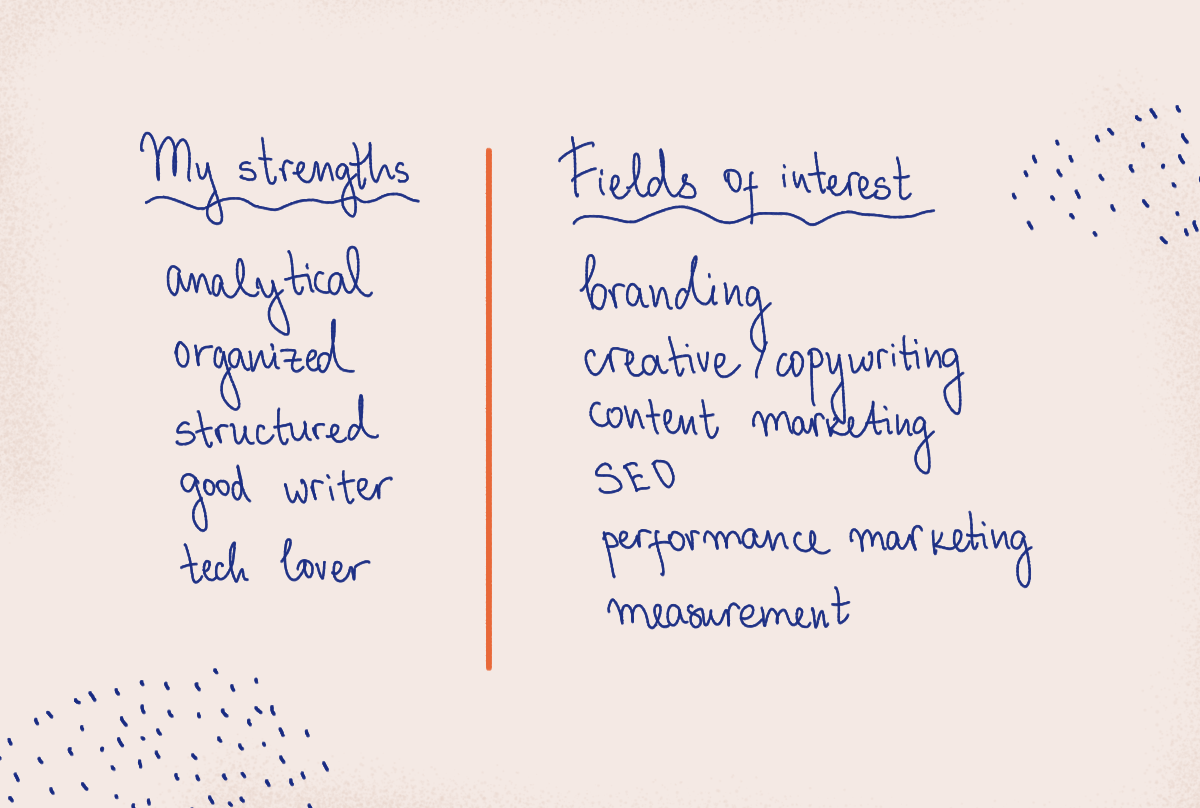 My strengths
analytical
organized
structured
good writer
tech lover
Fields of interest
branding
creative / copywriting
content marketing
SEO
performance marketing
measurement